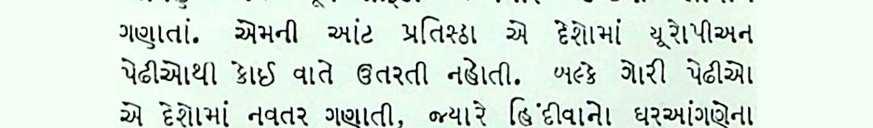 ગણાતાં. એમની આંટ પ્રતિસ્ઠા એ દેશોમાં યૂરોપીઅન
પેઢીઓથી કોઈ વાતે ઉતરતી નહોતી. બલ્કે ગોરી પેઢીઓ
એ દેશોમાં નવતર ગણાતી, જ્યારે હિંદીવાનો ઘરઆંગણેના